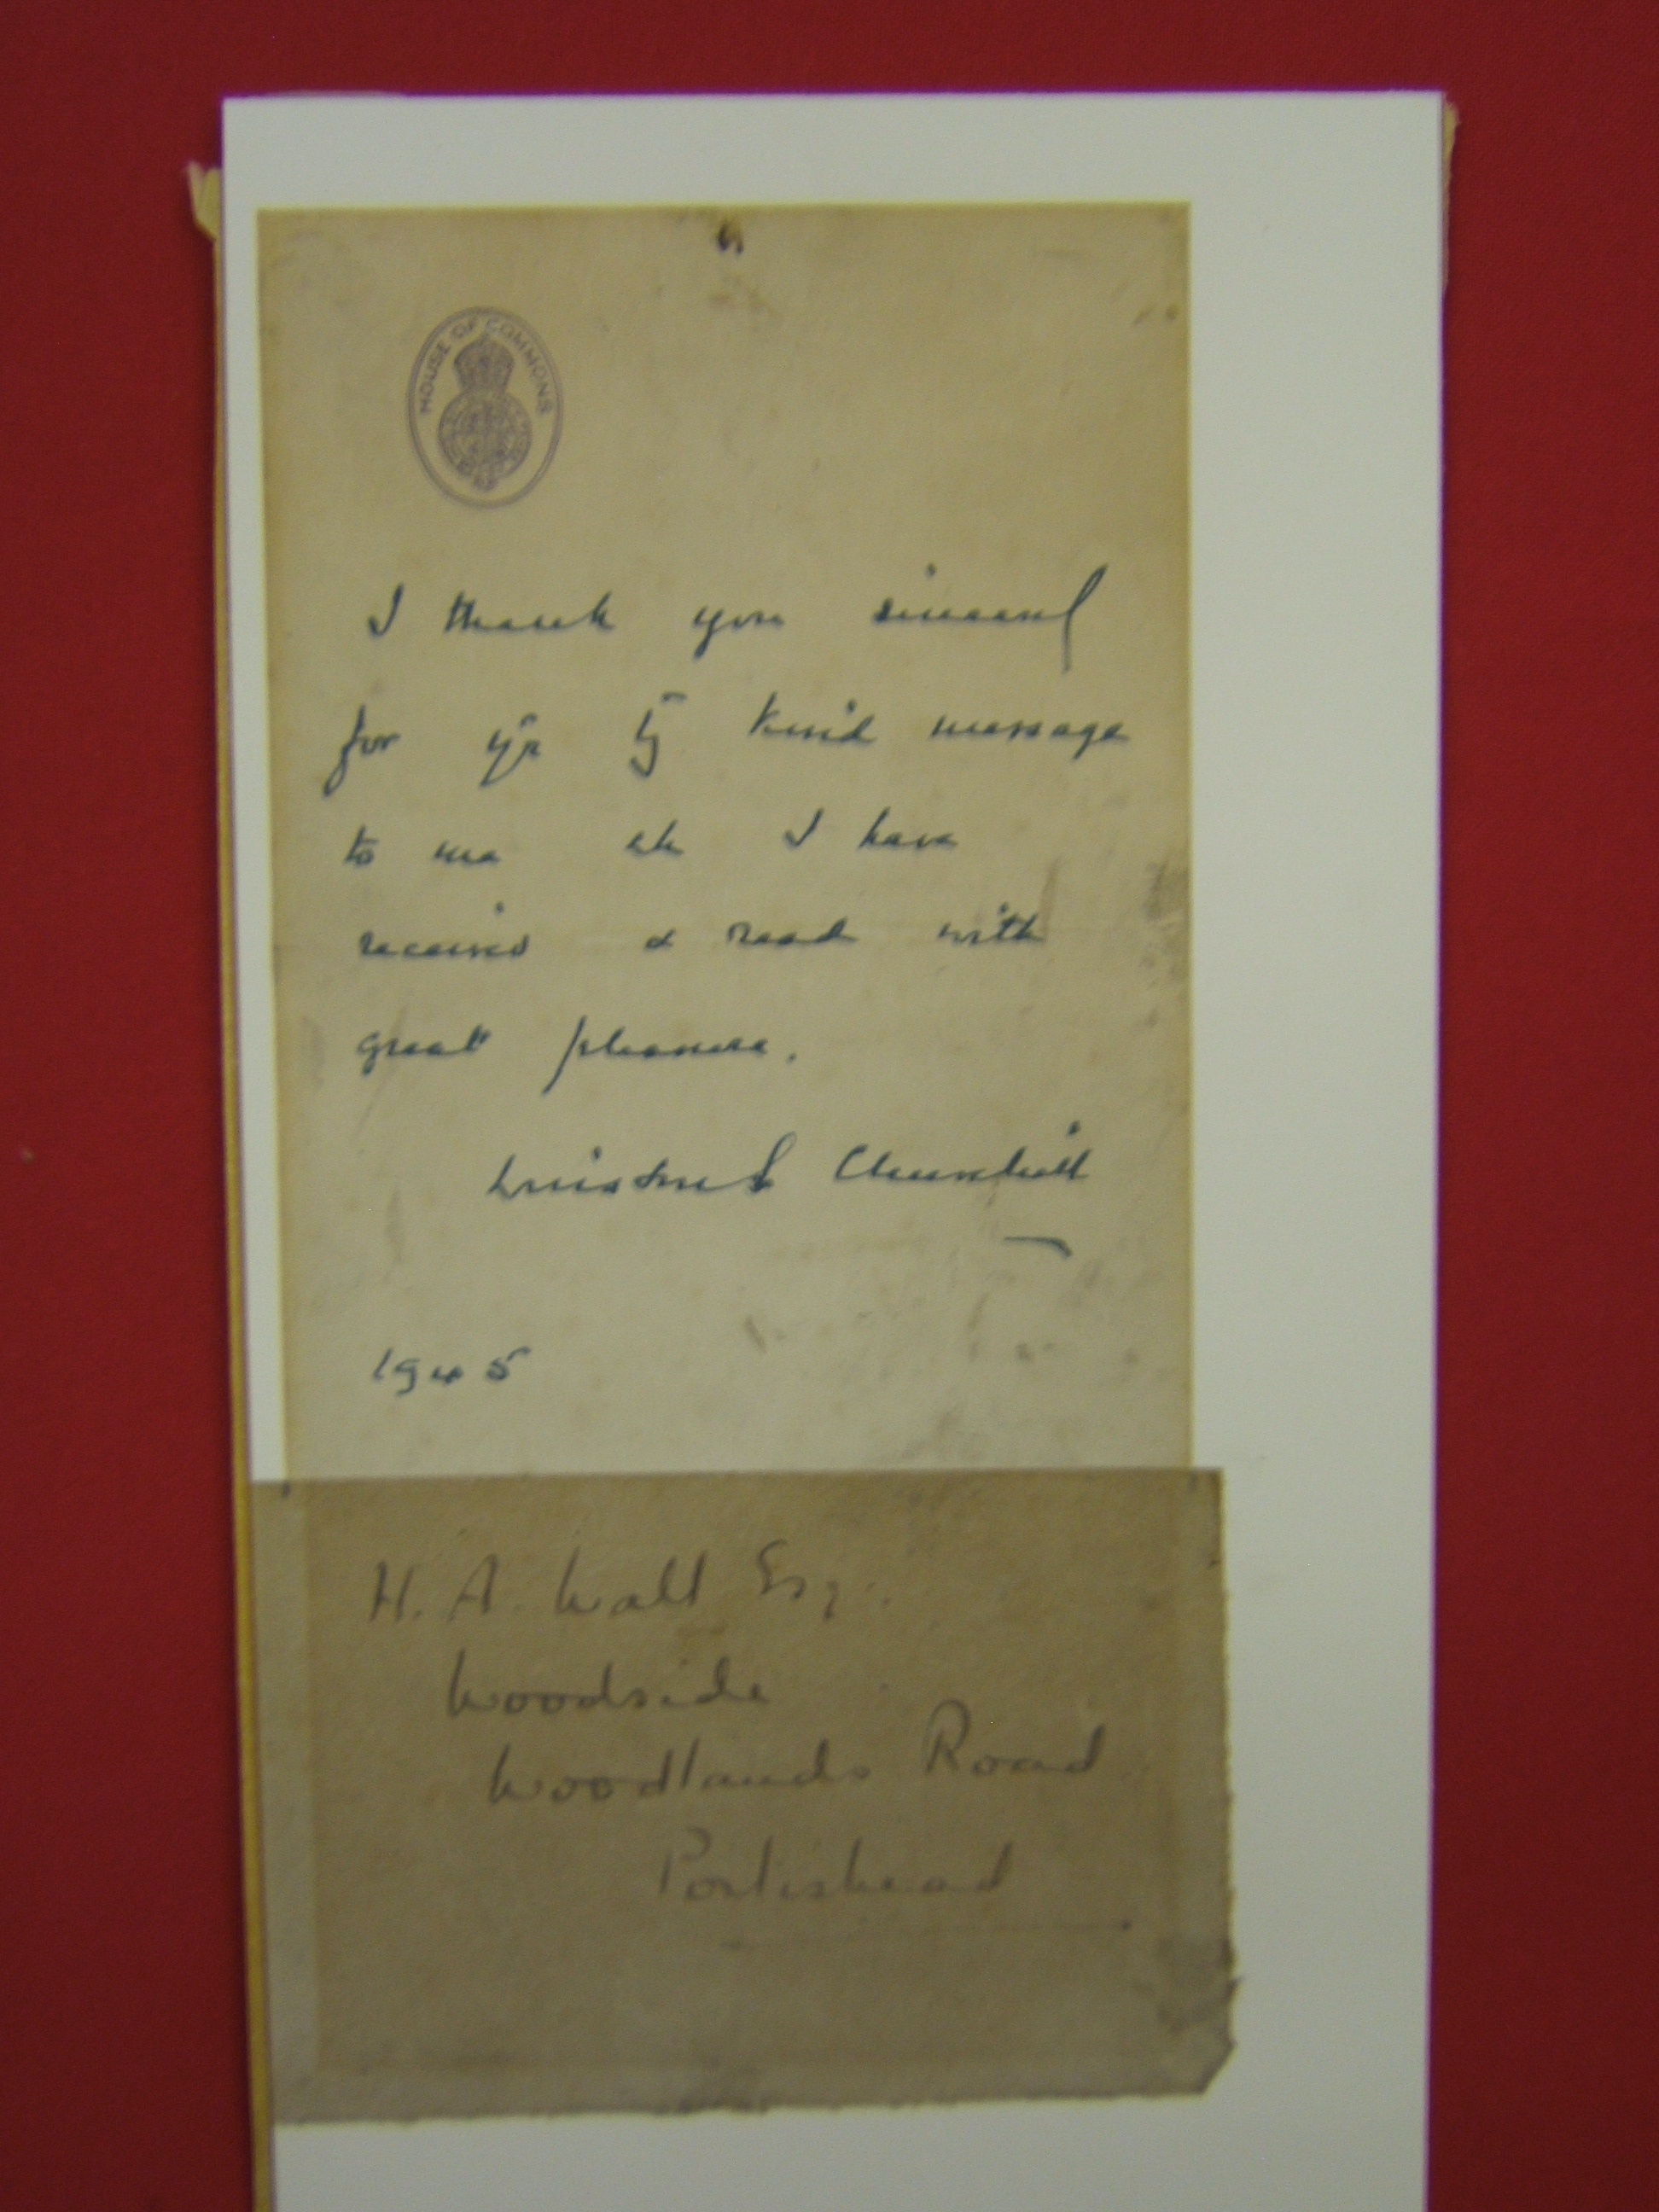 HOUSE OF COMMONS
I thank you sincerely
for yr kind message
to me wh I have
received & read with
great pleasure.
Winston S. Churchill
1945
H. A. Watt Esq.
Woodside
Woodlands Road
Portishead